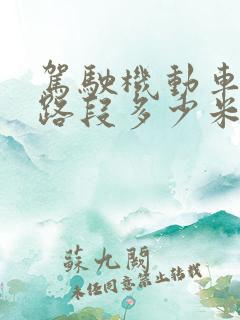 駕駛機動車
路段多少米
蘇九闕
未經同意禁止轉載